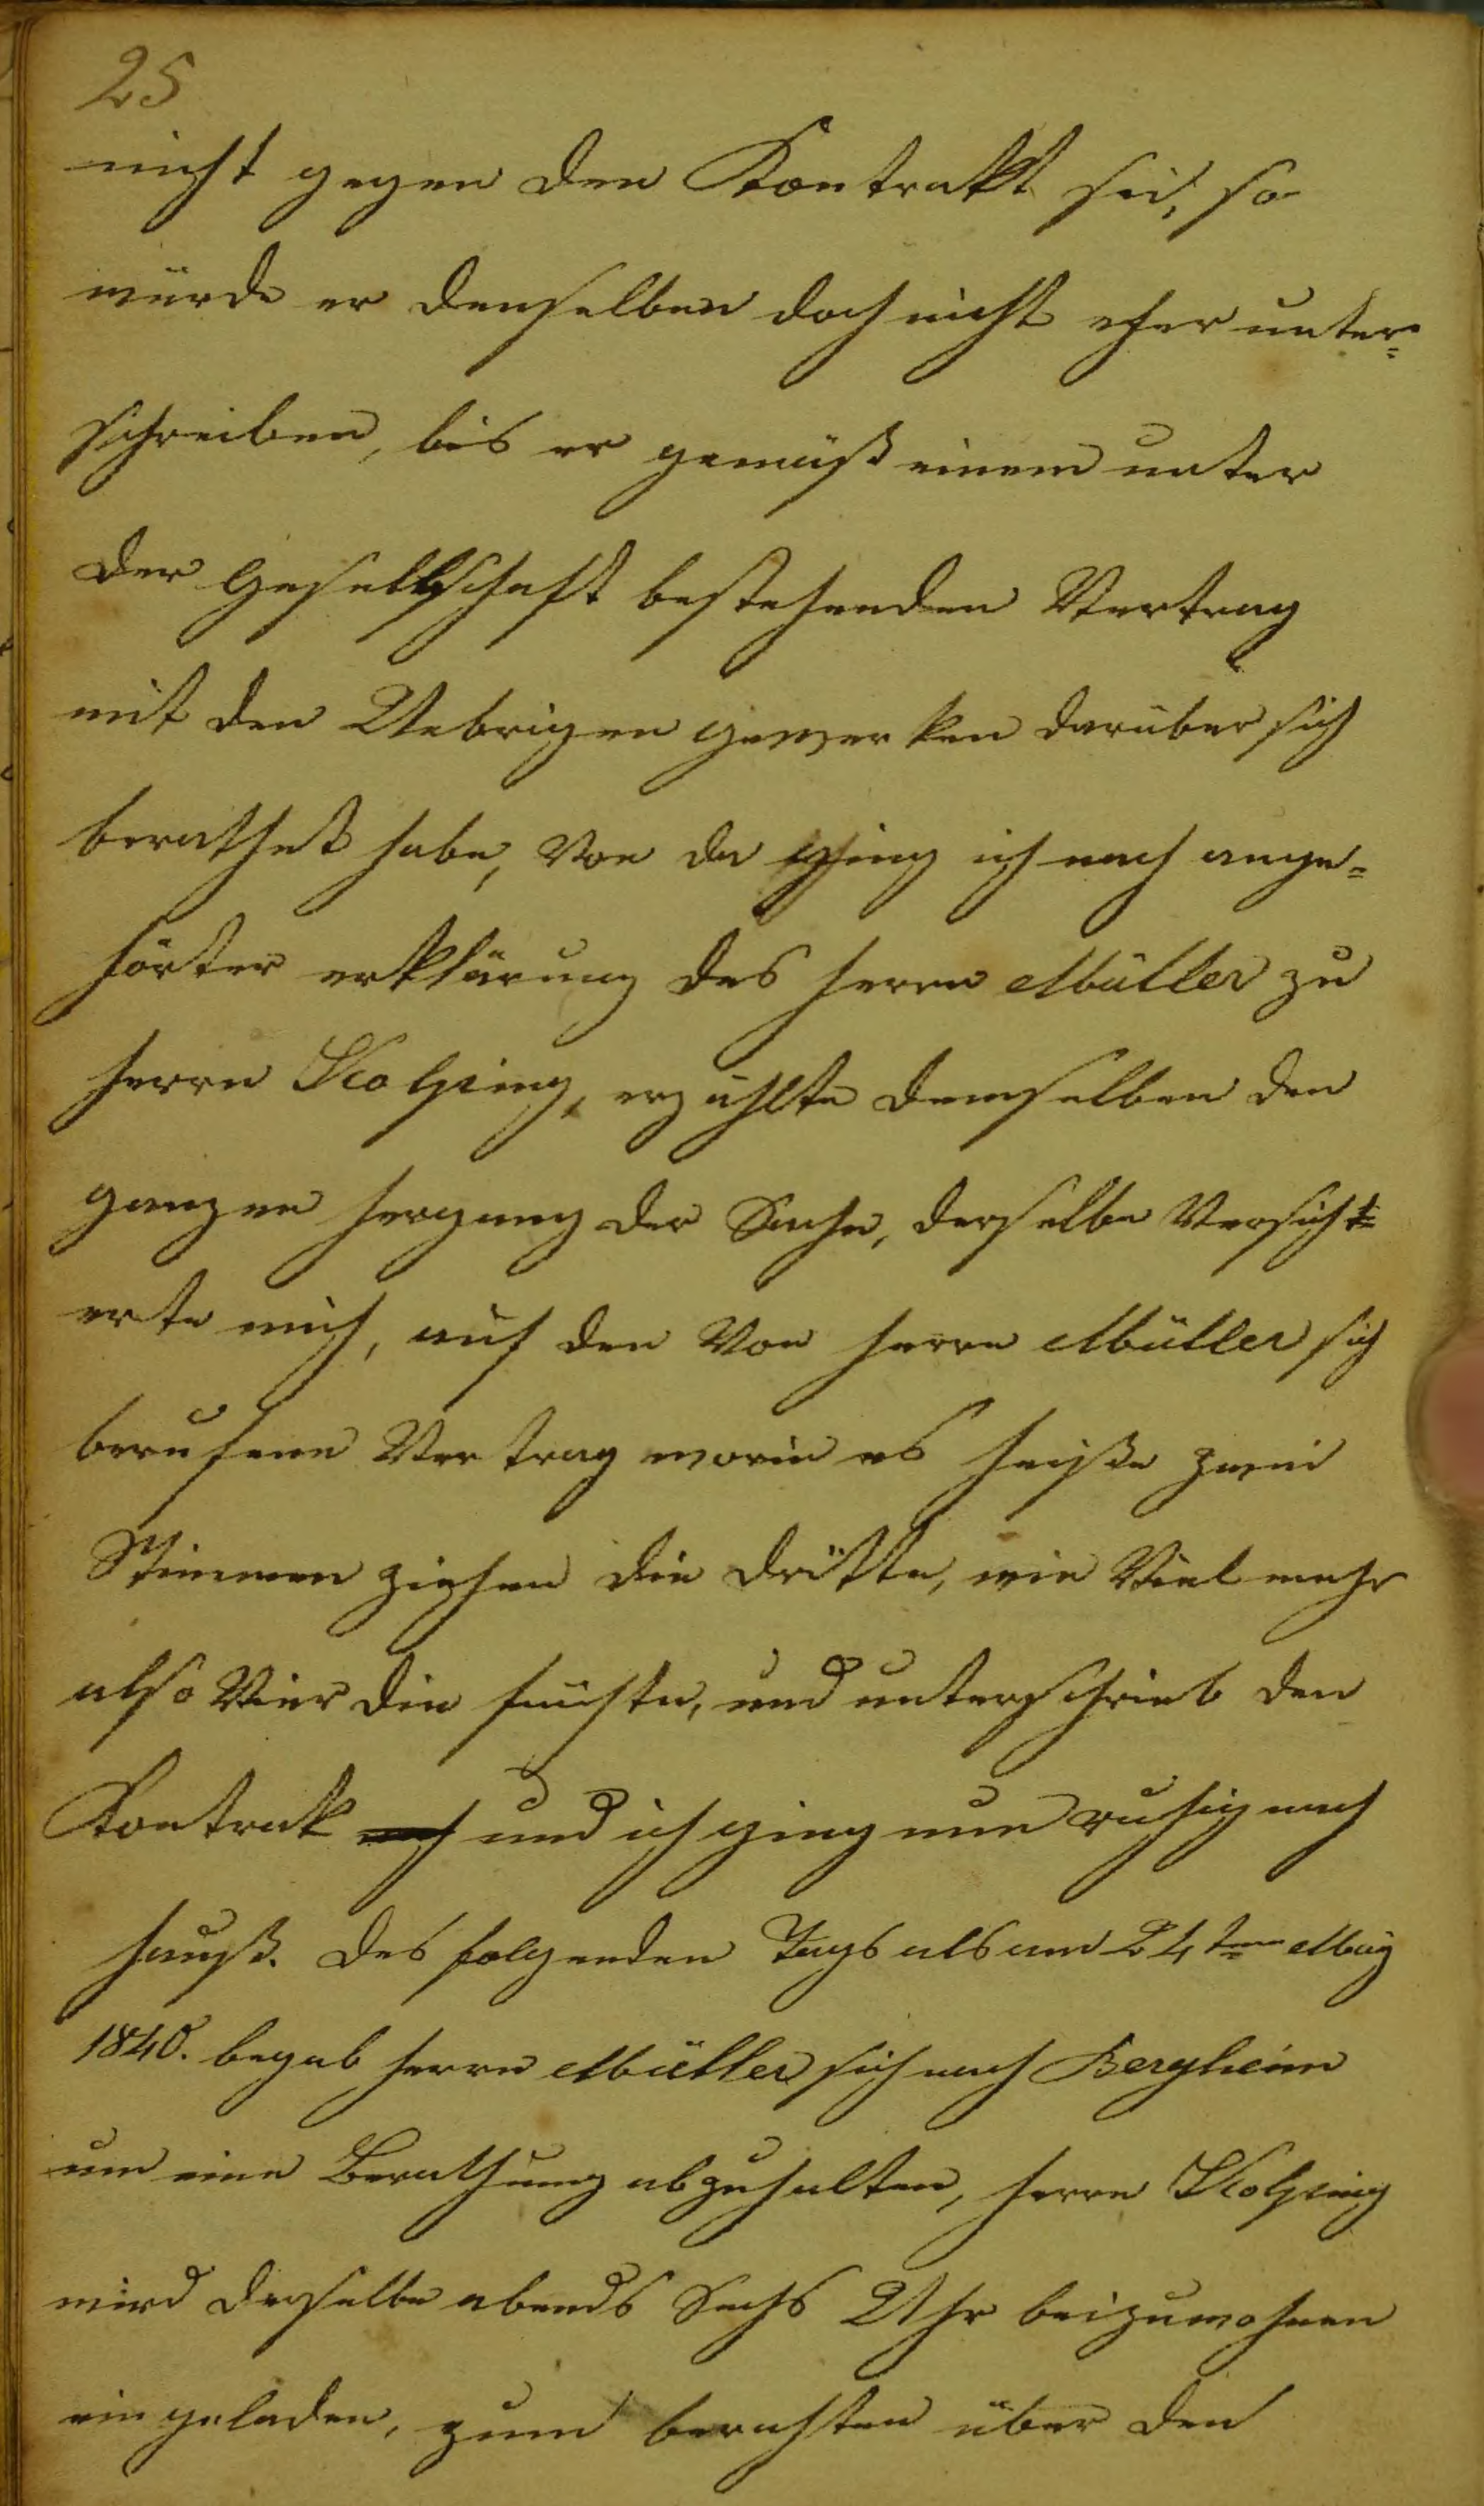 25
nicht gegen den Kontrakt sei, so
würde er denselben doch nicht eher unter=
schreiben, bis er gemäß einem unter
der Gesellschaft bestehenden Vertrag
mit den Uebrigen gewerken darüber sich
berathet habe, Von da ging ich nach ange=
hörter erklärung des herrn Müller zu
herrn Kolping, erzählte demselben den
ganzen hergang der Sache, derselbe Versich=
erte mich, auf den Von herrn Müller sich
berufene Vertrag worin es heiße zwei
Stimmen ziehen die dritte, wie Viel mehr
also Vier die fünfte, und unterschrieb den
Kontrak und ich ging nun ruhig nach
hauß. des folgenden Tags als am 24ten May
1840. begab herrn Müller sich nach Bergheim
um eine Berathung abzuhalten, herrn Kolping
wird derselbe abends Sechs Uhr beizuwohnen
eingeladen, zum berathen über den